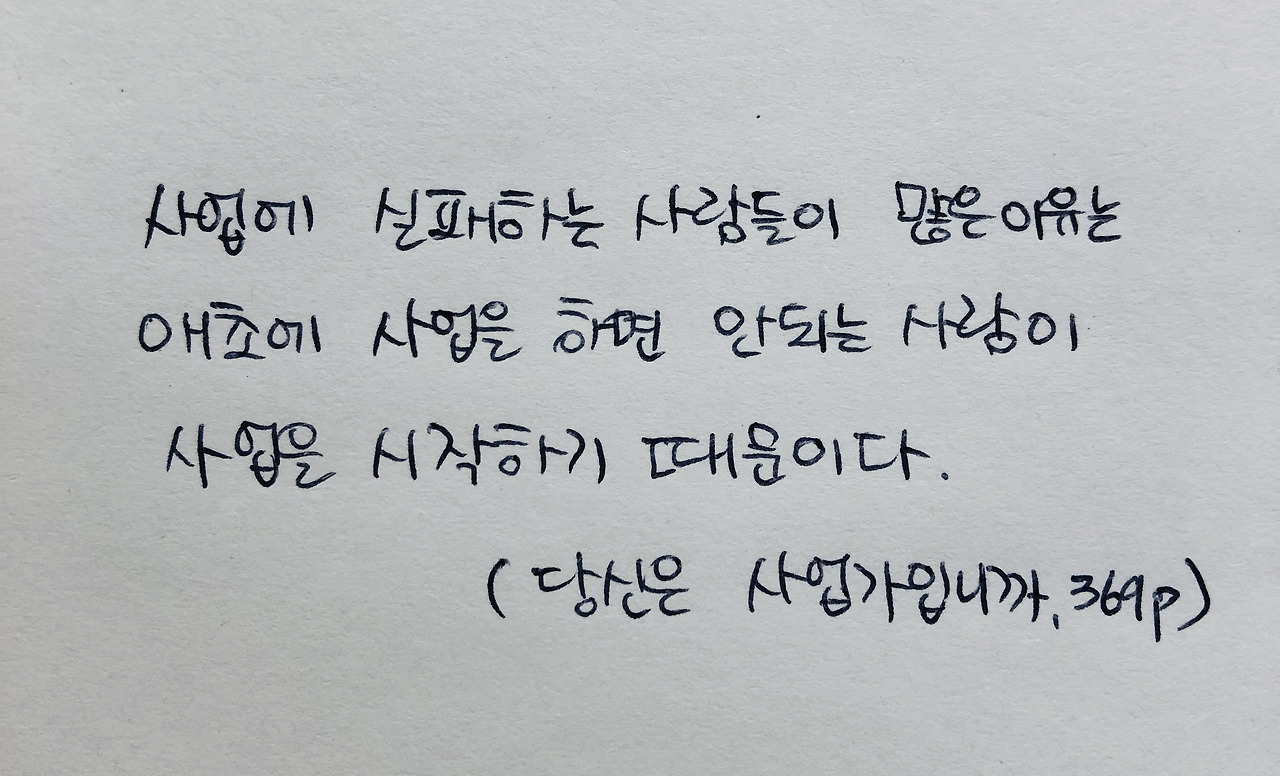 사업에 실패하는 사람들이 많은 이유는
애초에 사업을 하면 안되는 사람이
사업을 시작하기 때문이다.
(당신은 사업가입니까, 369p)